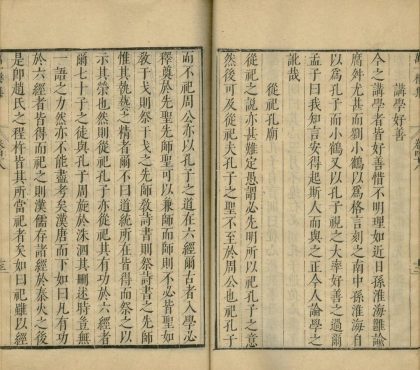 講學好善
今之講學者皆好善惜不明理如近日孫淮海雖論
腐舛尤甚而劉小鶴以爲格言刻之南中孫淮海自
以爲孔子而小鶴又以孔子視之大率好善之過爾
孟子曰我知言安得起斯人而與之正今人論學之
訛哉
從祀孔廟
從祀之說亦甚難定愚謂必先明所以祀孔子之意
然後可及從祀夫孔子之聖不至於周公也祀孔子
而不祀周公亦以孔子之道在六經爾古者入學必
釋奠於先聖先師聖可以兼師而師則不必皆聖如
敎干戈則祭干戈之先師敎詩書則祭詩書之先師
惟其執藝之精者爾不曰道統所在皆得而祭之以
示其榮也然則從祀孔子亦從祀其有功於六經者
爾七十子之徒與孔子周旋於洙泗其刪述時豈無
一語之力然亦不能盡考矣漢唐而下如曰凡有功
於六經者皆得而祀之則漢儒存諸經於秦火之後
是卽趙氏之程杵皆其所當祀者矣如曰祀雖以經